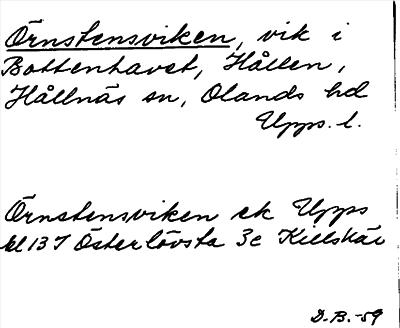 Örnstensviken, vik i
Bottenhavet, Hållen,
Hållnäs sn, Olands hd
Upps. l.
Örnstensviken ek Upps
bl 137 Österlövsta 3c Killskär
D.B.-59